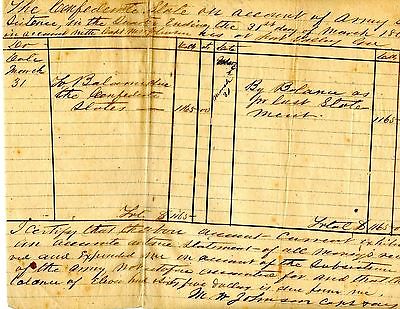 The Confederate States on account of Army Sub
sistence, in the Quarter ending the 31st day of March 186
in account with Capt
Dr
Date
March
31
To Balance due
the Confederate
States 1165 00
By Balance as
per last State
ment. 1165
Total $ 1165
Total $ 1165
I certify that the above account current exhibits
an accurate a true statement of all money's recei
ved and expended me on account of the Subsistence
of the Army not otherwise accounted for and that the
balance of Eleven hund sixty five dollars is due from me.
M. W. Johnson Capt